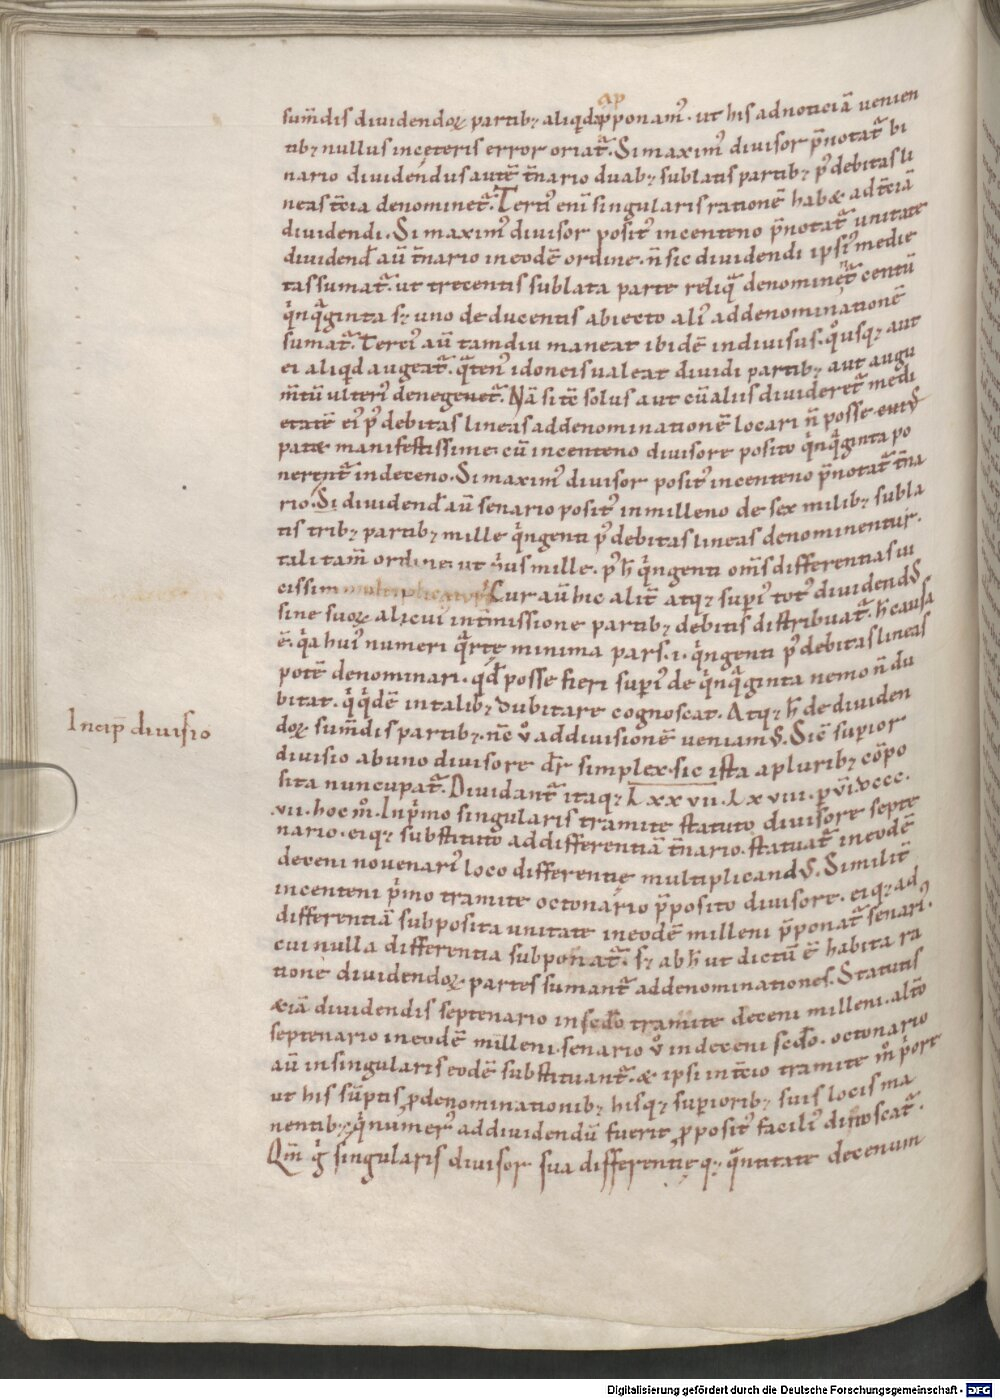 sum̄dis diuidendoꝝ partibꝫ aliqͥd p̄ponam᾽. ut his ad noticiā uenien
tibꝫ nullus in cęteris error oriat᷑. Si maxim᾽ diuisor p̄notat᷑ bi
nario diuidendus autē t̄nario duabꝫ sublatis partibꝫ ꝑ debitas li
neas t̄cia denominet᷑. Terti᾽ eni᷑ singularis rationē habꝫ ad t̄ciā
diuidendi. Si maxim᾽ diuisor posit᾽ in centeno p̄notat᷑ unitate
diuidend᾽ aū t̄nario in eodē ordine. n̄ sic diuidendi ipsi᾽ medie
tas sumat᷑. ut trecentis sublata parte reliq̄ denominet᷑ centū
qͥnqͣginta sꝫ uno de ducentis abiecto ali᾽ ad denominationē
sumat᷑. Terci᾽ aū tam diu maneat ibidē indiuisus. qͦusqꝫ aut
ei aliqͥd augeat᷑. qͣten᾽ idoneis ualeat diuidi partibꝫ aut augu
m̄tū ulteri᾽ denegetur᷑. Nā si t̄c solus aut cū alus diuideret᷑ medi
etatē ei᾽ ꝑ debitas lineas ad denominationē locari n̄ posse
patꝫ manifestissime. cū in centeno diuisore posito qͥnqͣginta po
nerent᷑ in deceno. Si maxim᾽ diuisor posit᾽ in centeno p̄notat᷑ t̄na
rio. Si diuidend᾽ aū senario posit᾽ in milleno de sex milibꝫ subla
tis tribꝫ partibꝫ mille qͥngenti ꝑ debitas lineas denominentur.
tali tam̄ ordine. ut p̄us mille. p᾽ h̄ qͥngenti om̄s differentias ui
cissim Cur aū hic alit̄ atqꝫ superi᾽ tot᾽ diuidend᾽
sine suoꝝ alicui᾽ int̄missione partibꝫ debitis distribuat᷑. h̄ causa
ē. qͥa hui᾽ numeri qͣrtę minima pars .i. qͥngenti ꝑ debitas lineas
potē denominari. qd᷑ posse fieri superi᾽ de qͥnqͣginta nemo n̄ du
bitat. qͥ qͥdē in talibꝫ dubitare cognoscat. Atqꝫ h̄ de diuiden
doꝝ sum̄dis partibꝫ. nc̄ uͦ ad diuisionē ueniam᾽. Sic̄ superior
Incip̄ diuisio
diuisio ab uno diuisore dr̄ simplex. sic ista a pluribꝫ cōpo
sita nuncupat᷑. Diuidant᷑ itaqꝫ lxxvii. lxviii. ꝑ vi. dccc.
.vii. hoc mͦ. In pͥmo singularis tramite statuto diuisore septe
nario. eiqꝫ substituto ad differentiā t̄nario. statuat᷑ in eodē
deceni nouenari᾽ loco differentię multiplicand᾽. Similit̄
in centeni pͥmo tramite octonario p̄posito diuisore. eiqꝫ ad
differentiā subposita unitate in eodē milleni p̄ponat᷑ senari᾽.
cui nulla differentia subponat᷑. sꝫ ab h̄ ut dictū ē habita ra
tionē diuidendoꝝ partes sumant᷑ ad denominationes. Statutis
ꝫiā diuidendis septenario in scd̄o tramite deceni milleni. alt̄o
septenario in eodē milleni. senario uͦ in deceni scd̄o. octonario
aū in singularis eodē substituant᷑. ꝫ ipsi in t̄cio tramite mͦ pͥore
ut his sūptis ꝓ denominationibꝫ hisqꝫ superioribꝫ suis locis ma
nentibꝫ. qͥ numer᾽ ad diuidendū fuerit ꝓposit᾽ facili᾽ dinoscat᷑.
Qm̄ gͥ singularis diuisor sua differentię qꝫ qͣntitate decenum
Digitalisierung gefördert durch die Deutsche Forschungsgemeinschaft - DFG